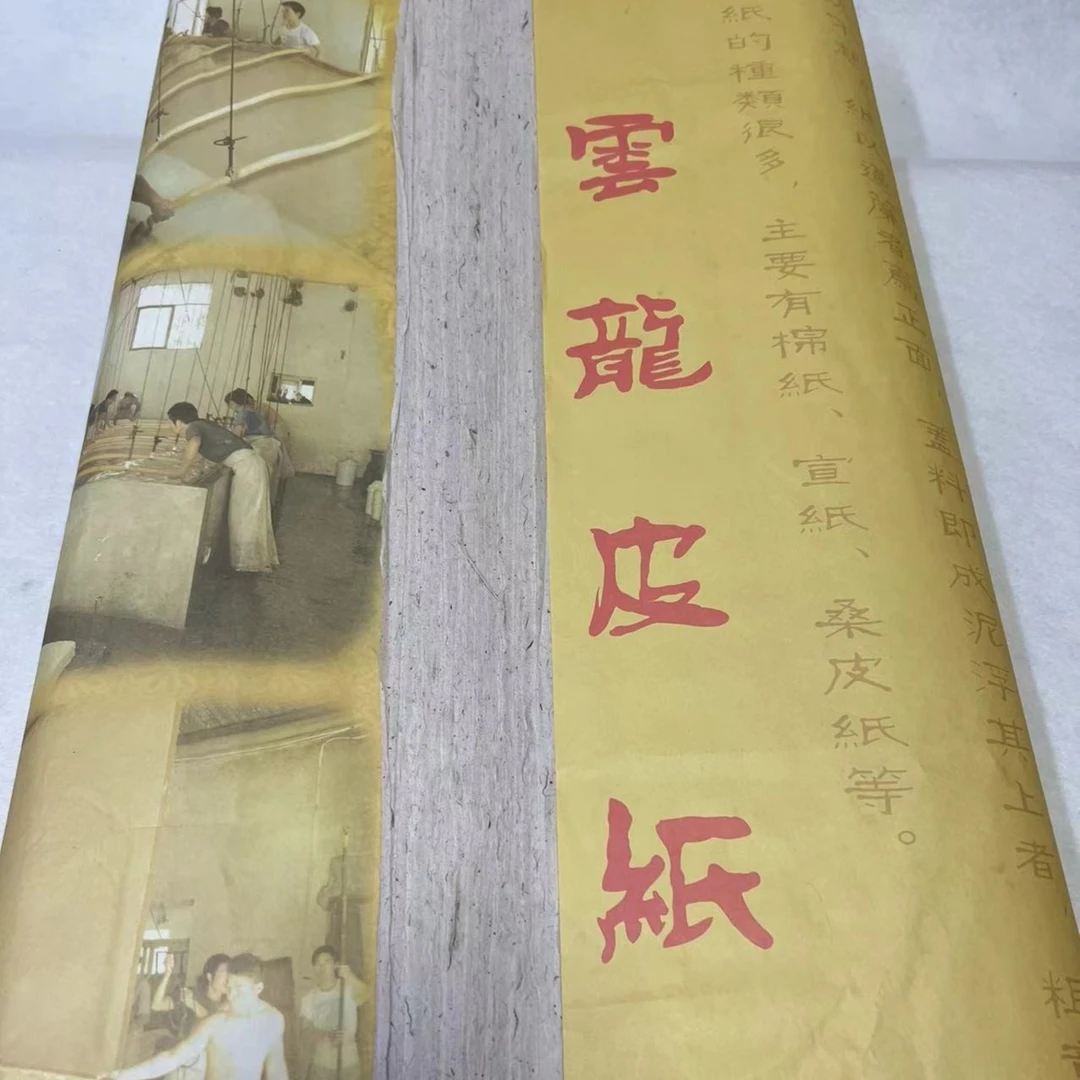 紙以逼簾者為正面，蓋料即成泥浮其上者，粗
紙的種類很多，主要有棉紙、宣紙、桑皮紙等。
雲龍皮紙